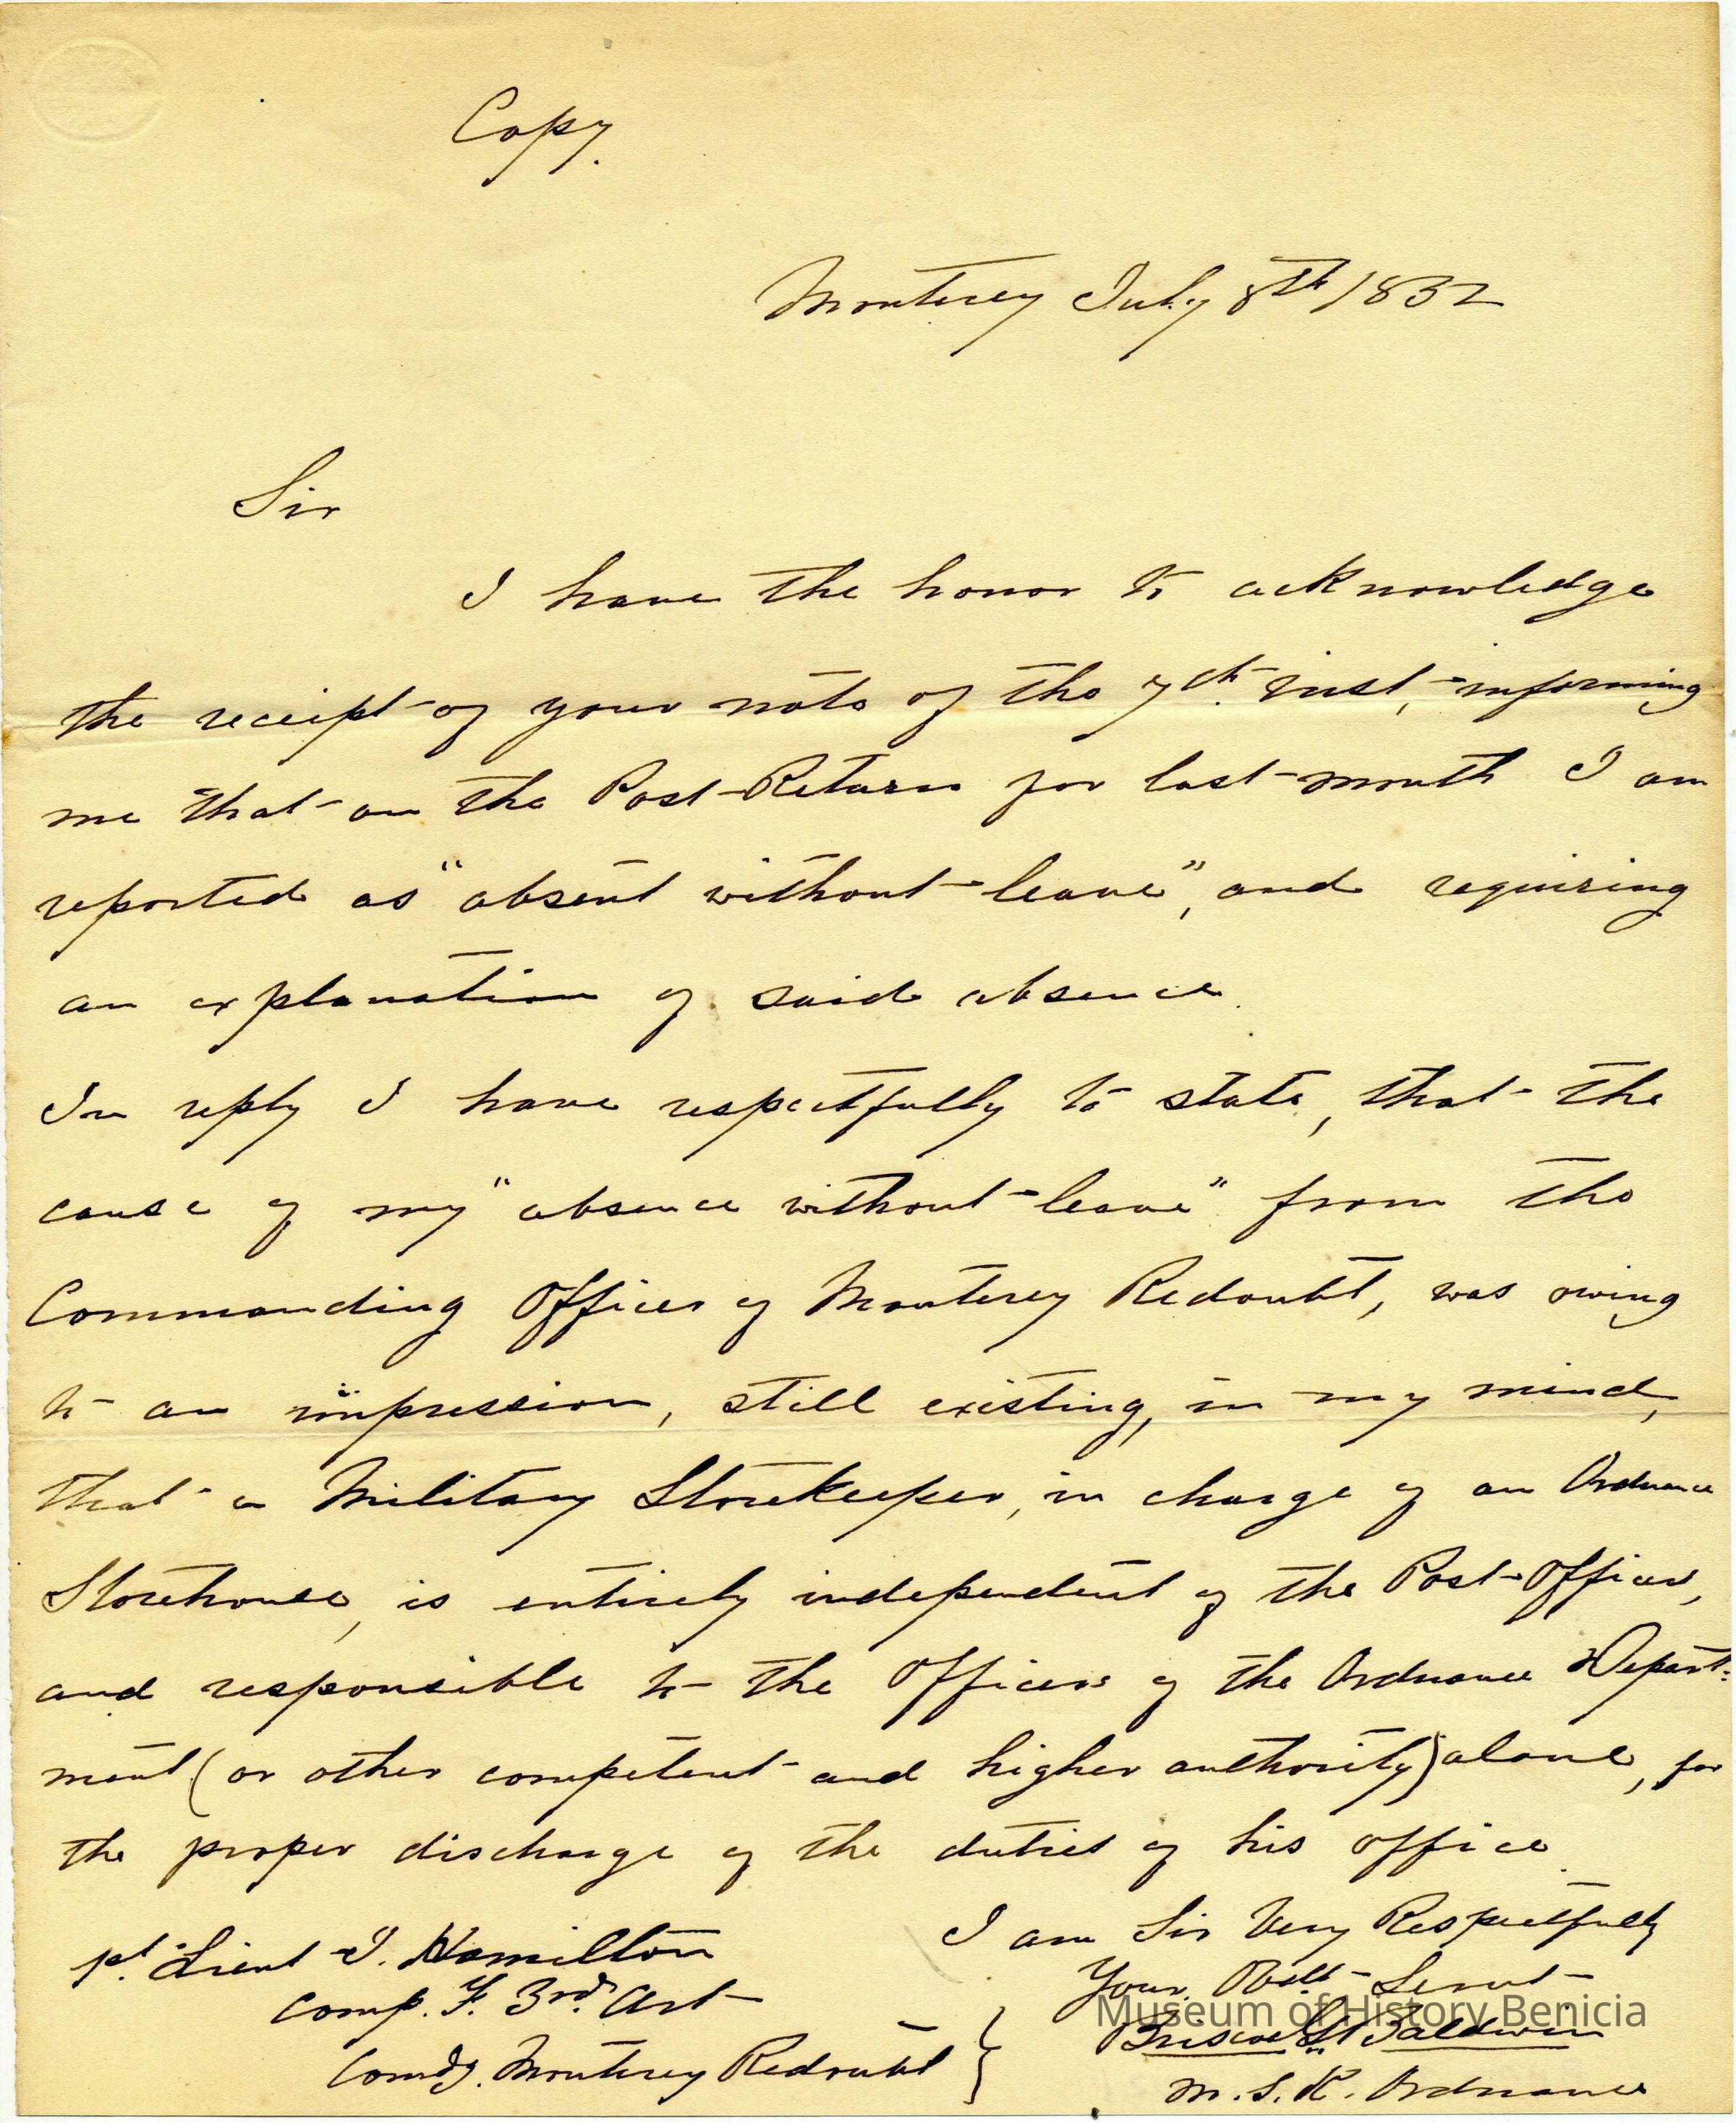 Copy.
Monterey July 8th 1852
Sir
I have the honor to acknowledge
the receipt of your note of the 7th. inst, informing
me that on the Post Return for last month I am
reported as "absent without leave", and requiring
an explanation of said absence.
In reply I have respectfully to state, that the
cause of my "absence without leave" from the
Commanding Officer of Monterey Redoubt, was owing
to an impression, still existing, in my mind,
that a Military Storekeeper, in charge of an Ordnance
Storehouse, is entirely independent of the Post Officer,
and responsible to the Officers of the Ordnance Depart:
ment (or other competent and higher authority) alone, for
the proper discharge of the duties of his office.
I am Sir Very Respectfully
Your Obdt Servt
Briscoe G. Baldwin
M. S. K. Ordnance
1st. Lieut J. Hamilton
Comp. F. 3rd. Art
Comdg. Monterey Redoubt
Museum of History Benicia